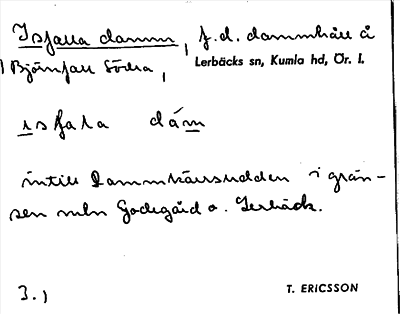 Isfalla damm, f.d. dammhåll å
Björnfall Södra, Lerbäcks sn, Kumla hd, Ör. l.
ısfala dám
intill Dammkärrsudden i grän-
sen mln Godegård o. Lerbäck.
3.)
T. ERICSSON